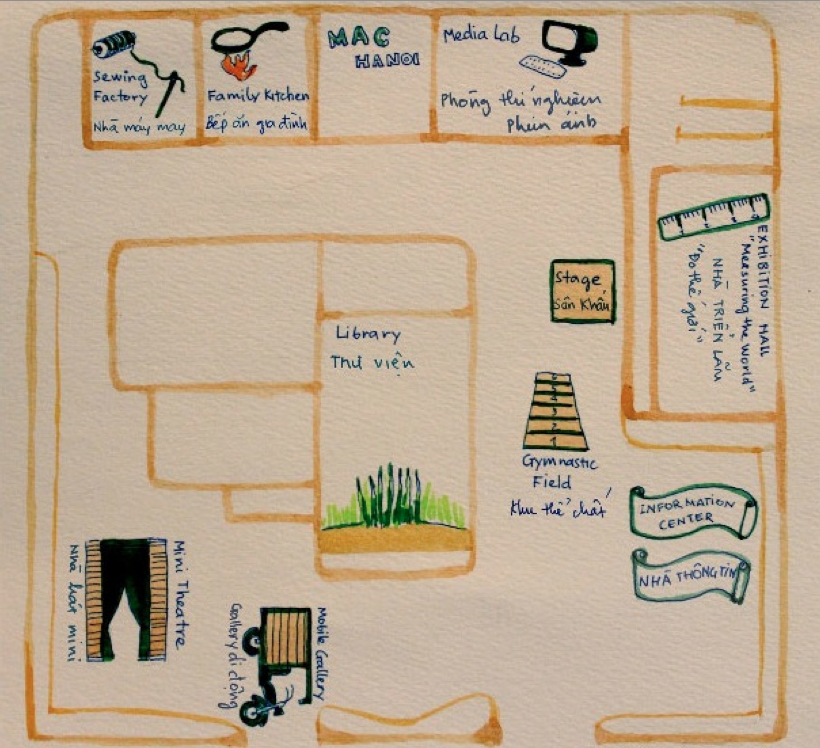 Sewing
Factory
Nhã máy may
Family Kitchen
Bếp ăn gia đình
MAC
HANOI
Media Lab
Phòng thí nghiệm
EXHIBITION HALL
"Measuring the World"
NHÀ TRIỂN LÃM
"Đo thế giới"
Stage
Sân Khấu
Library
Thư viện
6
5
4
3
2
1
Gymnastic
Field
Khu thể chất
INFORMATION
CENTER
NHÀ THÔNG TIN
Mini Theatre
Nhà hát mini
Mobile Gallery
Gallery di động